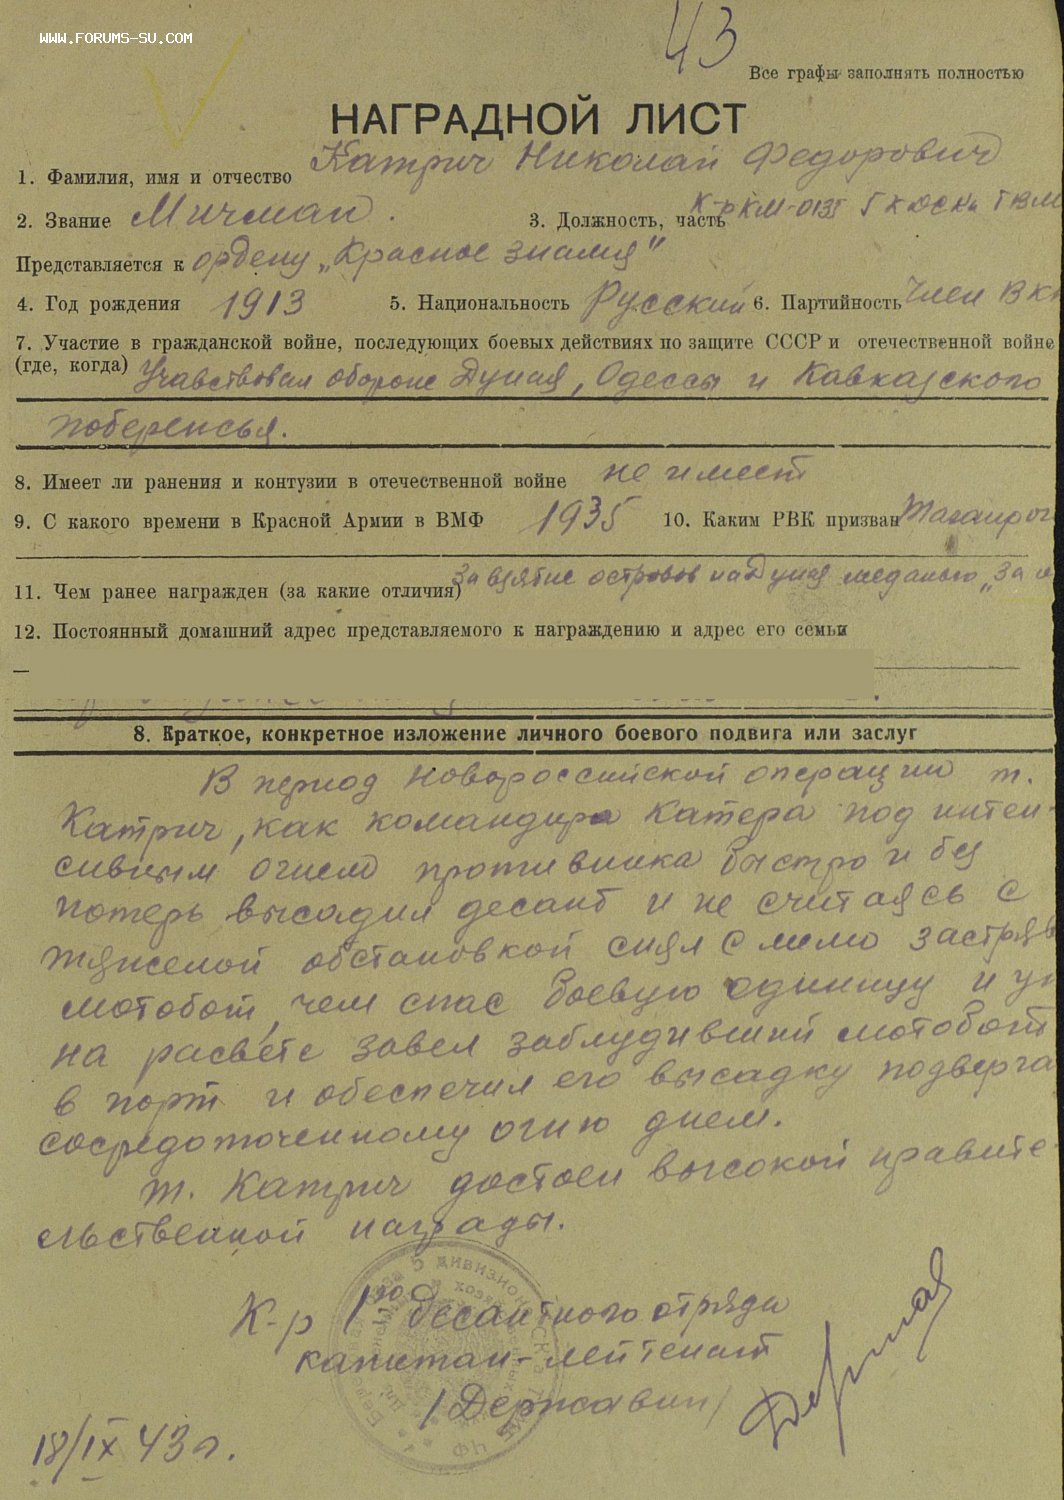 WWW.FORUMS-SU.COM
43
Все графы заполнять полностью
НАГРАДНОЙ ЛИСТ
1. Фамилия, имя и отчество Катрич Николай Федорович
2. Звание Мичман. 3. Должность, часть К-р КМ-0135
Представляется к ордену „Красное знамя"
4. Год рождения 1913 5. Национальность Русский 6. Партийность Член ВК
7. Участие в гражданской войне, последующих боевых действиях по защите СССР и отечественной войне
(где, когда) Учавствовал обороне Дуная, Одессы и Кавказского
побережья.
8. Имеет ли ранения и контузии в отечественной войне не имеет
9. С какого времени в Красной Армии в ВМФ 1935 10. Каким РВК призван Таганрог
11. Чем ранее награжден (за какие отличия) За взятие островов на Дунае медалью „За
12. Постоянный домашний адрес представляемого к награждению и адрес его семьи
8. Краткое, конкретное изложение личного боевого подвига или заслуг
В период Новороссийской операции т.
Катрич, как командир катера под интен-
сивным огнем противника быстро и без
потерь высадил десант и не считаясь с
тяжелой обстановкой снял с мели застряв
мотобот, чем спас боевую единицу и
на расвете завел заблудивший мотобот
в порт и обеспечил его высадку подверга
сосредоточенному огню днем.
т. Катрич достоен высокой правите-
льственной награды.
К-р 1го десантного отряда
капитан-лейтенант
/Державин/
18/IX 43 г.